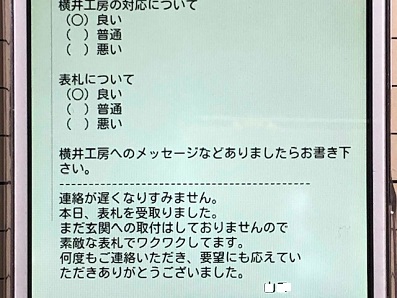 横井工房の対応について
（○）良い
（　）普通
（　）悪い
表札について
（○）良い
（　）普通
（　）悪い
横井工房へのメッセージなどありましたらお書き下
さい。
--------------------------------------------
連絡が遅くなりすみません。
本日、表札を受取りました。
まだ玄関への取付はしておりませんので
素敵な表札でワクワクしてます。
何度もご連絡いただき、要望にも応えてい
ただきありがとうございました。